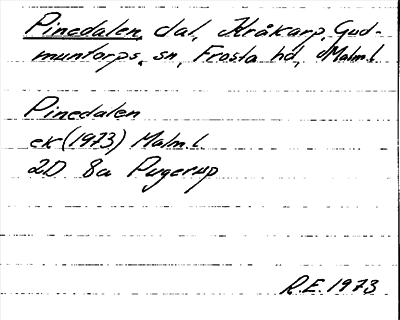 Pinedalen, dal, Kråkarp, Gud-
muntorps, sn, Frosta hd, Malm.l
Pinedalen
ek (1973) Malm.l.
2D 8a Pugerup
R.E. 1973